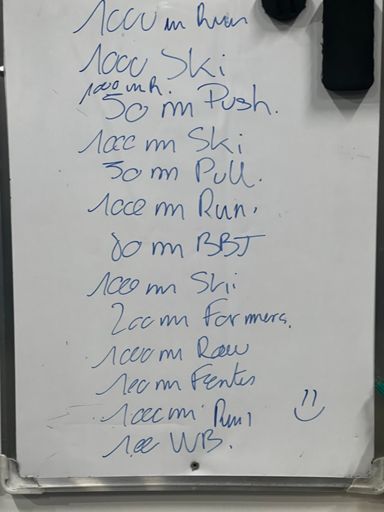 1000 m Run
1000 Ski
1000 m R.
50 m Push.
1000 m Ski
50 m Pull.
1000 m Run.
80 m BBJ
1000 m Ski
200 m Farmers.
1000 m Row
100 m Fentes
1000 m Run
100 WB.